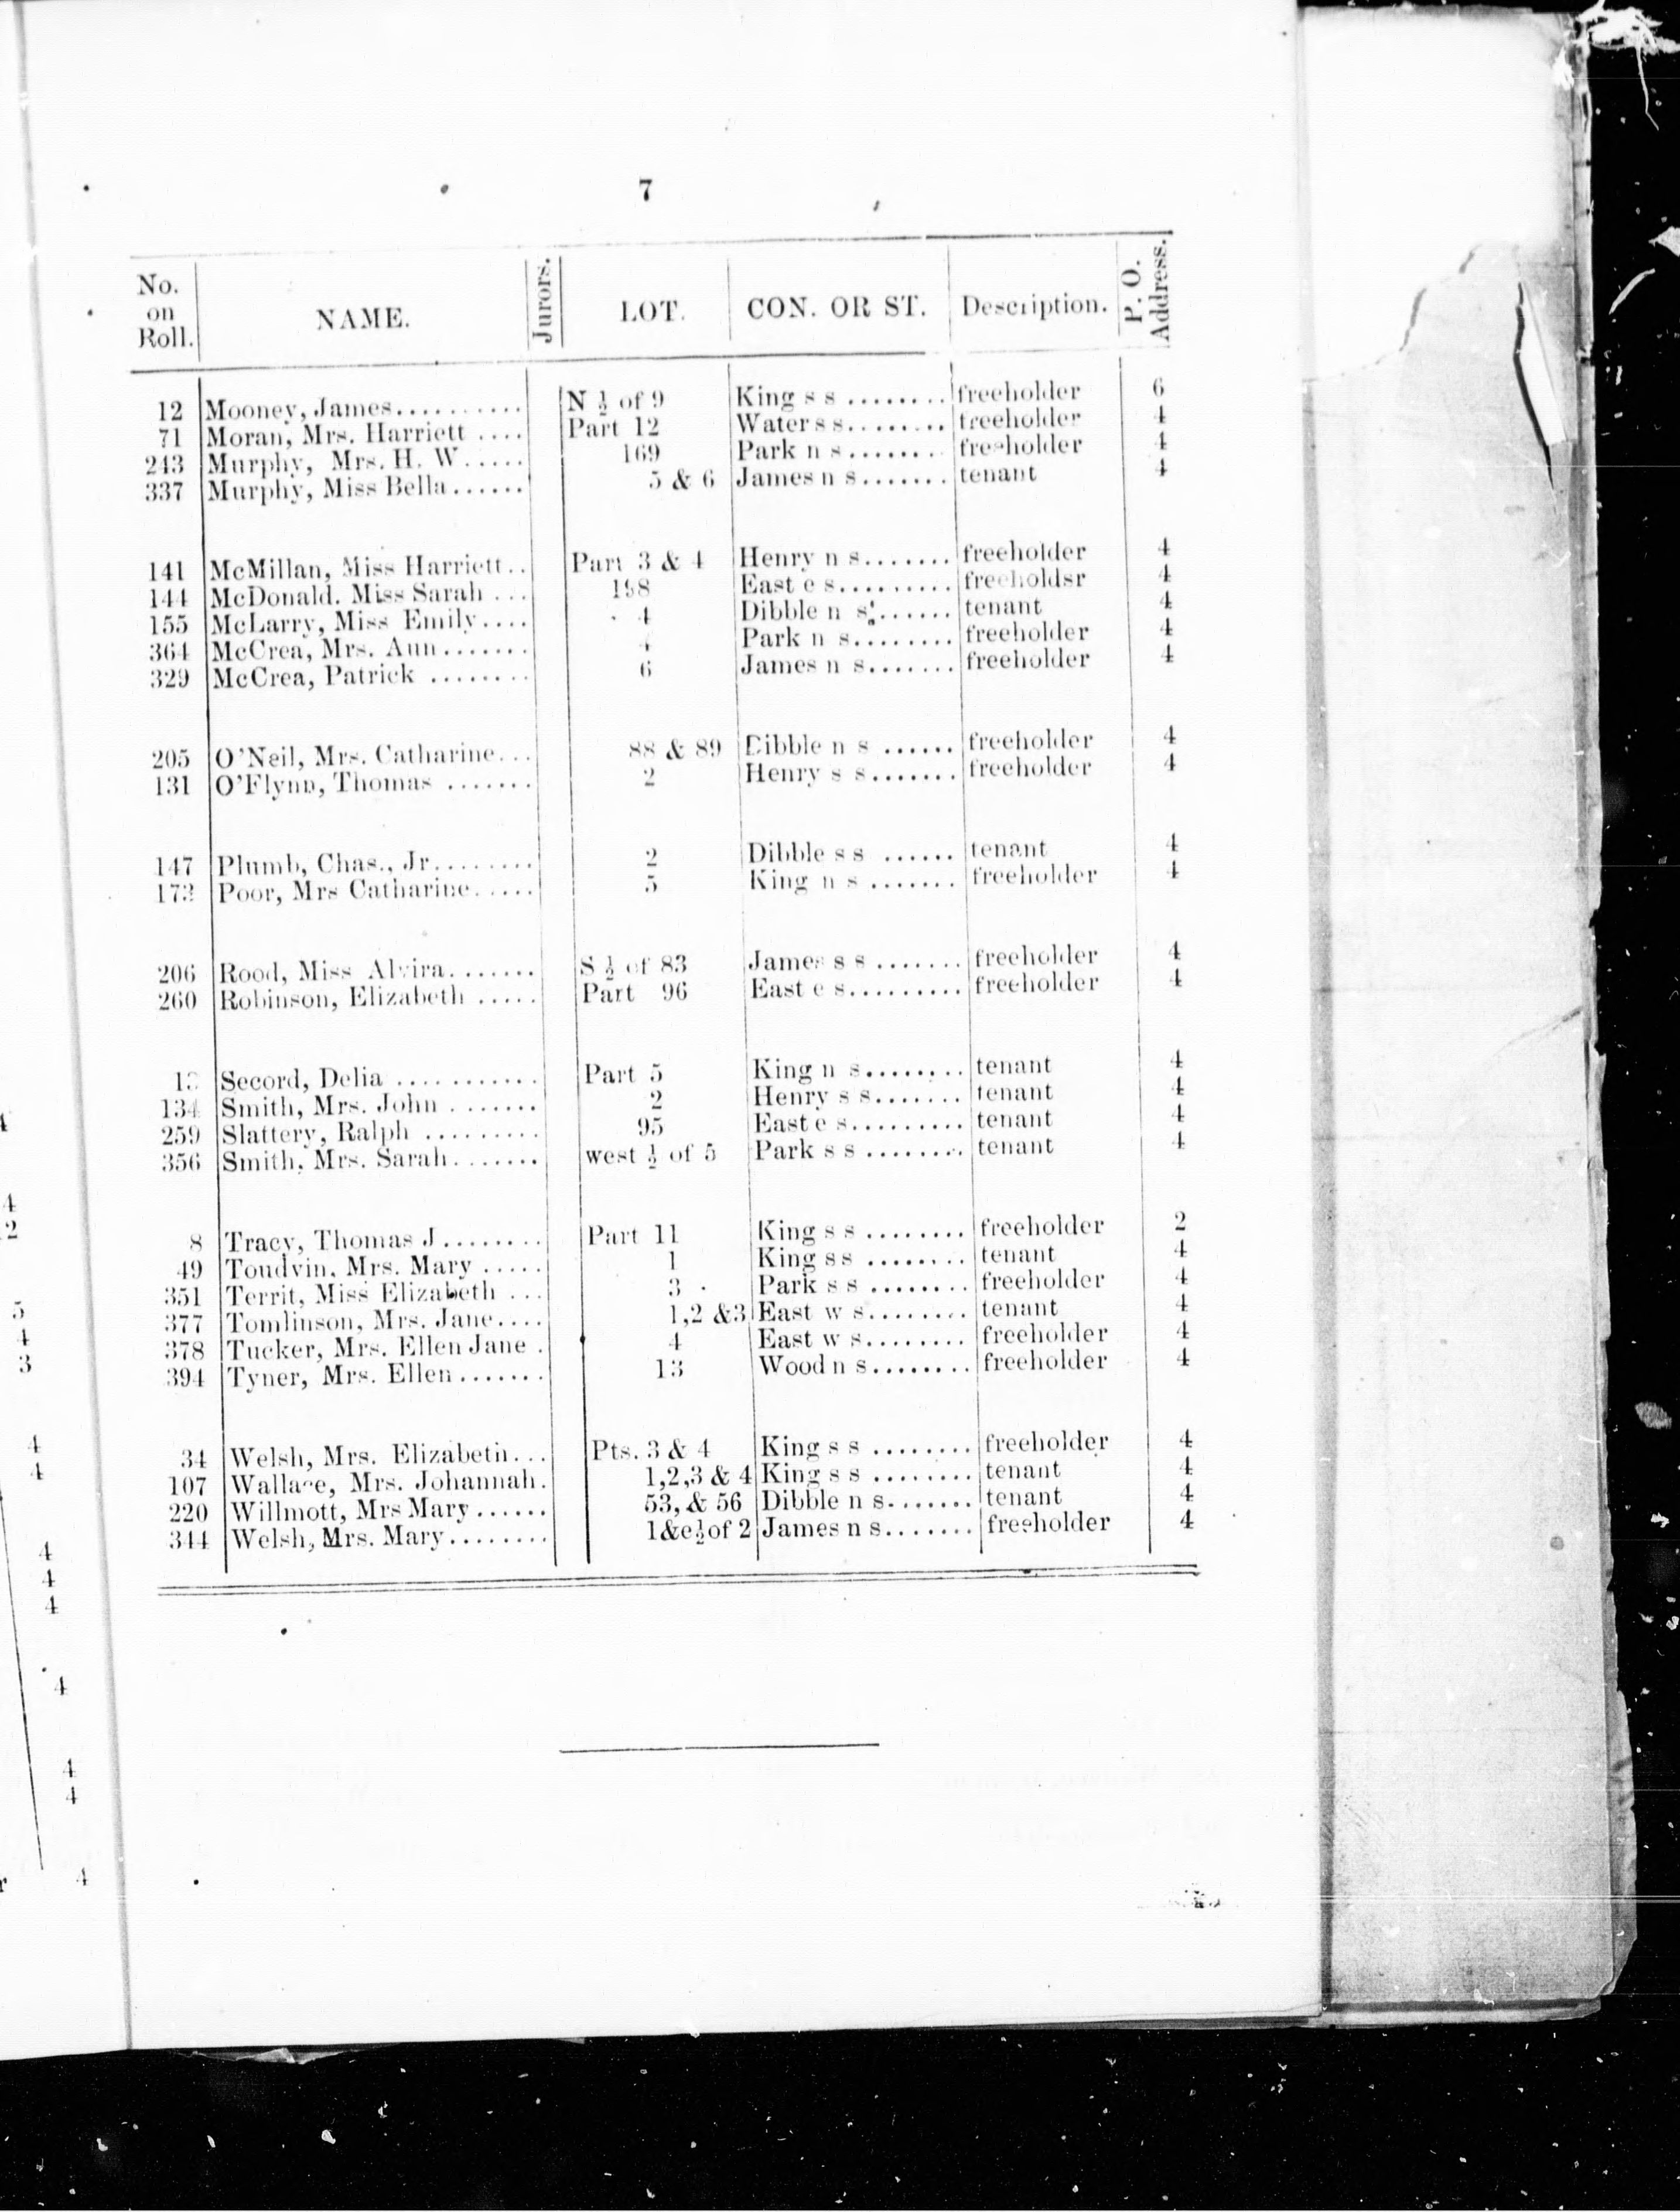 7
No. on Roll. NAME. Jurors. LOT. CON. OR ST. Description. P. O. Address.
12 Mooney, James.......... N ½ of 9 King s s ........ freeholder 6
71 Moran, Mrs. Harriett .... Part 12 Water s s........ freeholder 4
243 Murphy, Mrs. H. W..... 169 Park n s........ freeholder 4
337 Murphy, Miss Bella...... 5 & 6 James n s....... tenant 4
141 McMillan, Miss Harriett.. Part 3 & 4 Henry n s....... freeholder 4
144 McDonald. Miss Sarah ... 198 East e s.......... freeholdsr 4
155 McLarry, Miss Emily.... 4 Dibble n s....... tenant 4
364 McCrea, Mrs. Ann....... 4 Park n s........ freeholder 4
329 McCrea, Patrick ........ 6 James n s....... freeholder 4
205 O'Neil, Mrs. Catharine... 88 & 89 Dibble n s ...... freeholder 4
131 O'Flynn, Thomas ....... 2 Henry s s....... freeholder 4
147 Plumb, Chas., Jr........ 2 Dibble s s ...... tenant 4
173 Poor, Mrs Catharine..... 5 King n s ....... freeholder 4
206 Rood, Miss Alvira....... S ½ of 83 James s s ....... freeholder 4
260 Robinson, Elizabeth ..... Part 96 East e s......... freeholder 4
Secord, Delia ........... Part 5 King n s........ tenant 4
134 Smith, Mrs. John ....... 2 Henry s s....... tenant 4
259 Slattery, Ralph ......... 95 East e s......... tenant 4
356 Smith, Mrs. Sarah....... west ½ of 5 Park s s ........ tenant 4
8 Tracy, Thomas J........ Part 11 King s s ........ freeholder 2
49 Toudvin, Mrs. Mary ..... 1 King s s ........ tenant 4
351 Territ, Miss Elizabeth ... 3 Park s s ........ freeholder 4
377 Tomlinson, Mrs. Jane.... 1,2 &3 East w s........ tenant 4
378 Tucker, Mrs. Ellen Jane . 4 East w s........ freeholder 4
394 Tyner, Mrs. Ellen....... 13 Wood n s........ freeholder 4
34 Welsh, Mrs. Elizabeth... Pts. 3 & 4 King s s ........ freeholder 4
107 Wallace, Mrs. Johannah. 1,2,3 & 4 King s s ........ tenant 4
220 Willmott, Mrs Mary...... 53, & 56 Dibble n s....... tenant 4
344 Welsh, Mrs. Mary........ 1&e½of 2 James n s....... freeholder 4